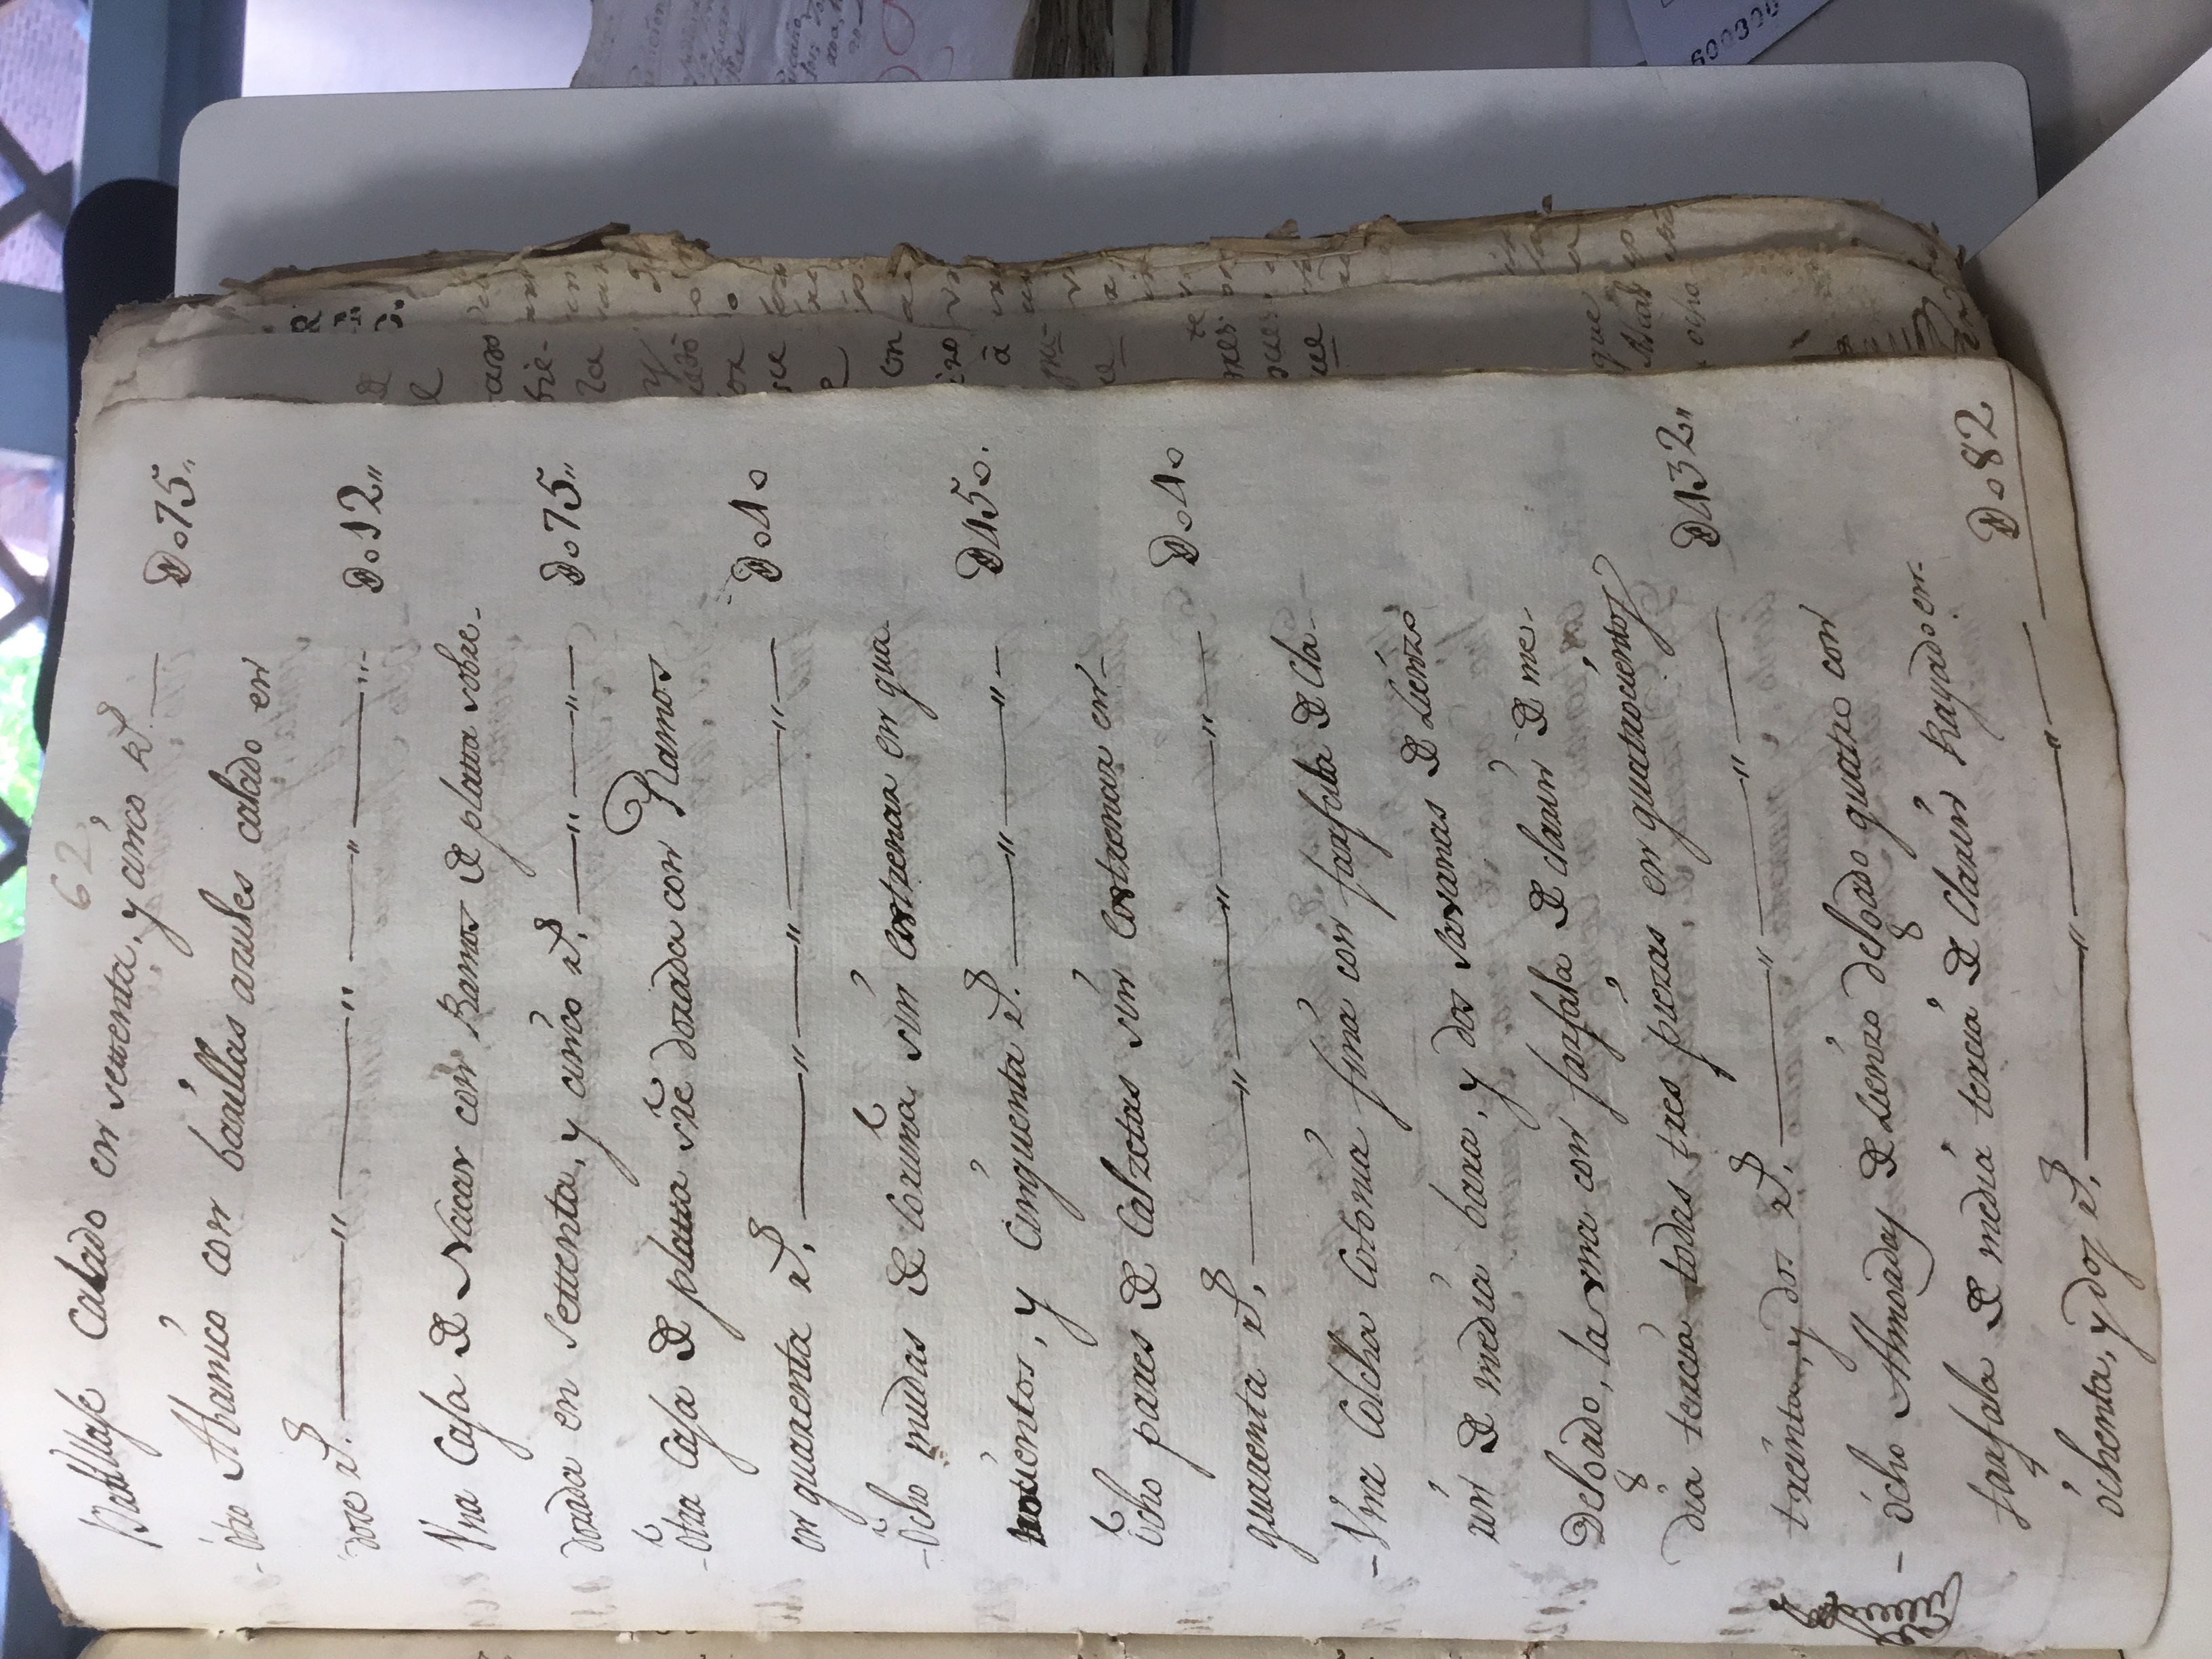 62
Varillaje Calado en settenta, y cinco r.s D.o75,,
-ótro Abanico con barillas azules calado en
doze r.s D.o12,,
Vna Caja De Nacar con Ramos De platta sobre-
dorada en settenta, y cinco r.s D.o75,,
-ótra Caja De platta sre dorada con Ramos
en quarenta r.s D.o40
-ócho mudas De Coruña sin estrenar en qua-
trocientos, y Cinquenta r.s D450.
ócho pares De Calzetas sin estrenar en-
quarenta r.s D.o40
-Vna Colcha Cotonia fina con farfala De Cla-
rin De media bara, y dos savanas De Lienzo
Delgado, la vna con farfala De clarin De me-
dia tercia todas tres piezas en quatrocientos
treinta, y dos r.s D432,,
-ócho Almoadas De Lienzo delgado quatro con
farfala De media tercia De Clarin Rayado en-
óchenta, y dos r.s D.o82